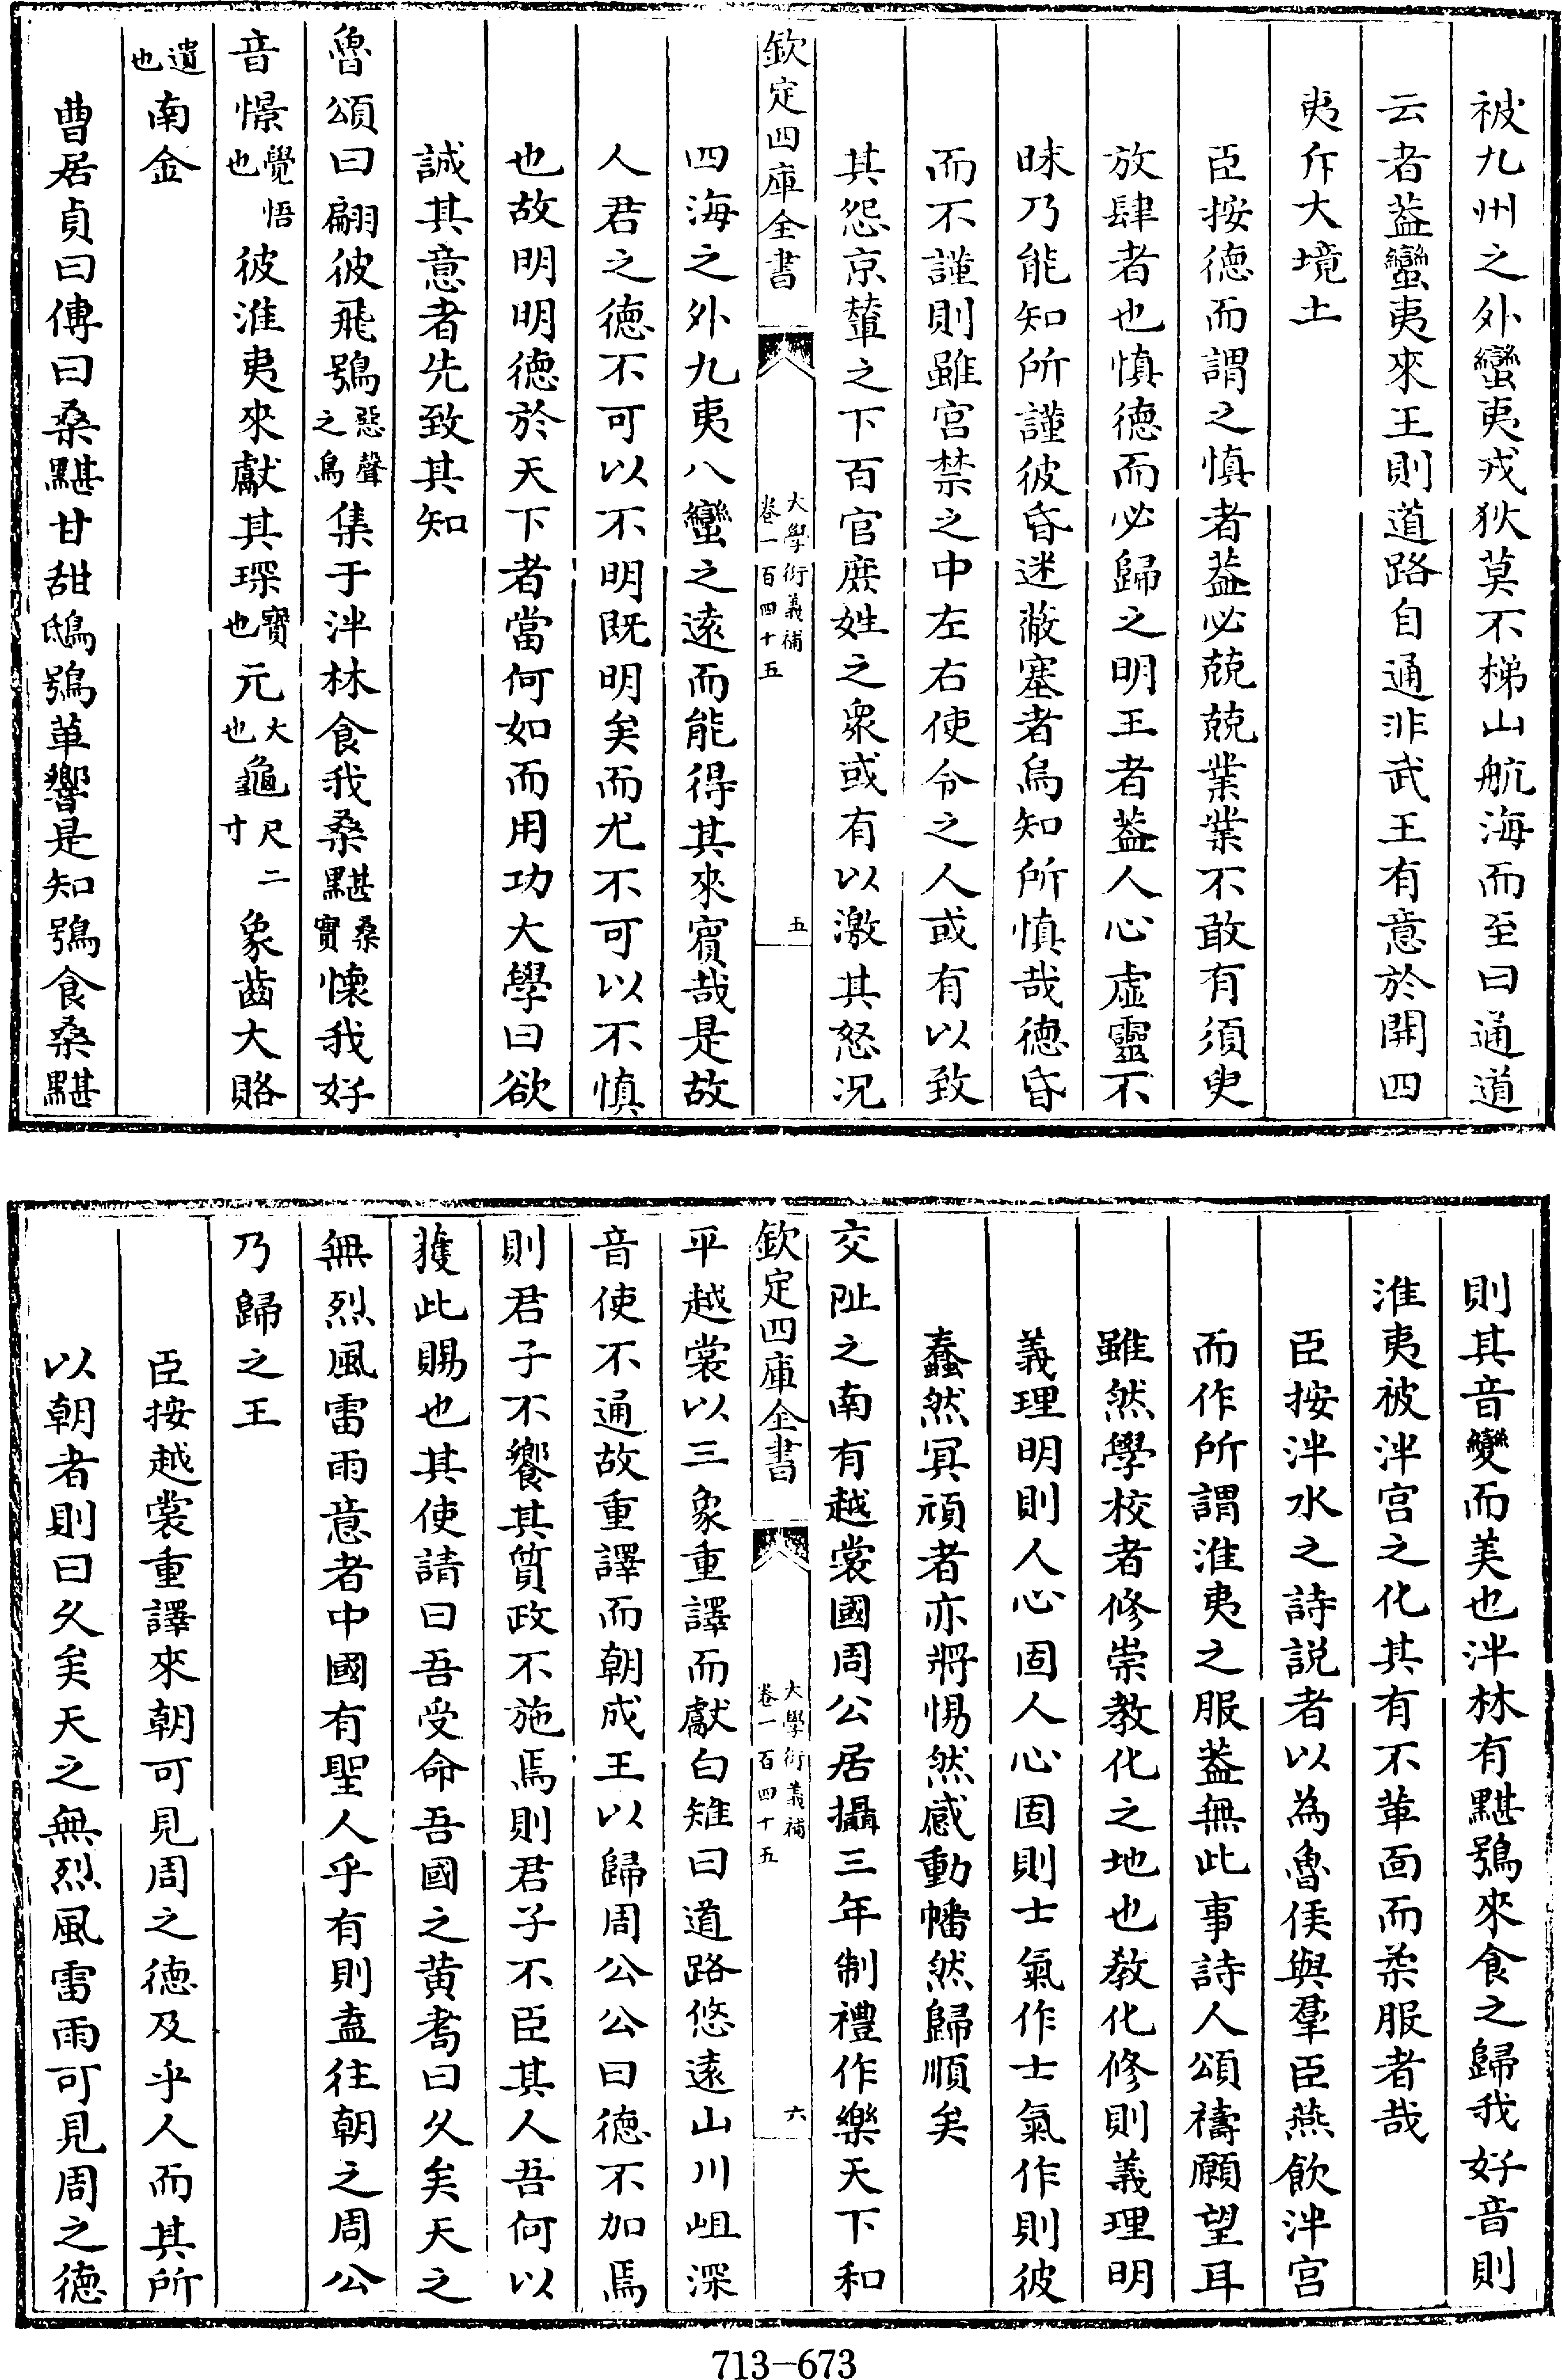 被九州之外蠻夷戎狄莫不梯山航海而至曰通道
云者葢蠻夷來王則道路自通非武王有意於開四
夷斥大境土
臣按德而謂之慎者葢必兢兢業業不敢有須臾
放肆者也慎德而必歸之明王者葢人心虛靈不
昧乃能知所謹彼昏迷蔽塞者烏知所慎哉德昏
而不謹則雖宮禁之中左右使令之人或有以致
其怨京輦之下百官庶姓之衆或有以激其怒况
欽定四庫全書
大學衍義補
卷一百四十五
五
四海之外九夷八蠻之遠而能得其來賓哉是故
人君之德不可以不明既明矣而尤不可以不慎
也故明明德於天下者當何如而用功大學曰欲
誠其意者先致其知
魯頌曰翩彼飛鴞惡聲之鳥集于泮林食我桑黮桑實懷我好
音憬覺悟也彼淮夷來獻其琛寶也元大也龜尺二寸象齒大賂
遺也南金
曹居貞曰傳曰桑黮甘甜鴟鴞革響是知鴞食桑黮
則其音變而美也泮林有黮鴞來食之歸我好音則
淮夷被泮宮之化其有不革面而柔服者哉
臣按泮水之詩説者以為魯侯與羣臣燕飲泮宮
而作所謂淮夷之服葢無此事詩人頌禱願望耳
雖然學校者修崇教化之地也教化修則義理明
義理明則人心固人心固則士氣作士氣作則彼
蠢然冥頑者亦將惕然感動幡然歸順矣
交阯之南有越裳國周公居攝三年制禮作樂天下和
欽定四庫全書
大學衍義補
卷一百四十五
六
平越裳以三象重譯而獻白雉曰道路悠遠山川岨深
音使不通故重譯而朝成王以歸周公公曰德不加焉
則君子不饗其質政不施焉則君子不臣其人吾何以
獲此賜也其使請曰吾受命吾國之黄耉曰久矣天之
無烈風雷雨意者中國有聖人乎有則盍往朝之周公
乃歸之王
臣按越裳重譯來朝可見周之德及乎人而其所
以朝者則曰久矣天之無烈風雷雨可見周之德
713-673